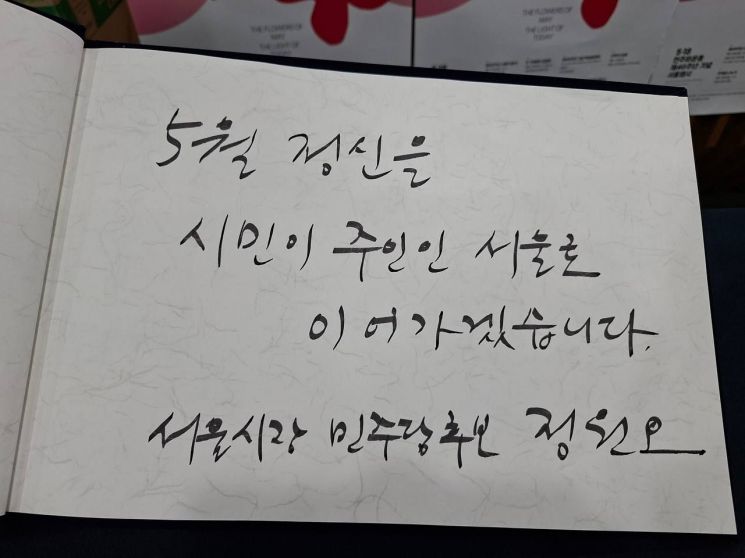 THE FLOWERS OF
MAY
THE LIGHT OF
TODAY
THE FLOWERS OF
MAY
THE LIGHT OF
TODAY
5월 정신을
시민이 주인인 서울로
이어가겠습니다.
서울시장 민주당후보 정원오